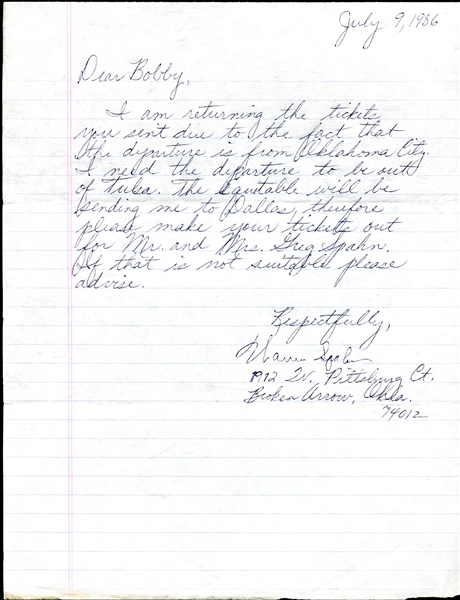 July 9, 1986
Dear Bobby,
I am returning the tickets
you sent due to the fact that
the departure is from Oklahoma City.
I need the departure to be out
of Tulsa. The Equitable will be
sending me to Dallas, therefore
please make your tickets out
for Mr. and Mrs. Greg Spahn.
If that is not suitable please
advise.
Respectfully,
Warren Spahn
1912 W. Pittsburg Ct.
Broken Arrow, Okla.
74012